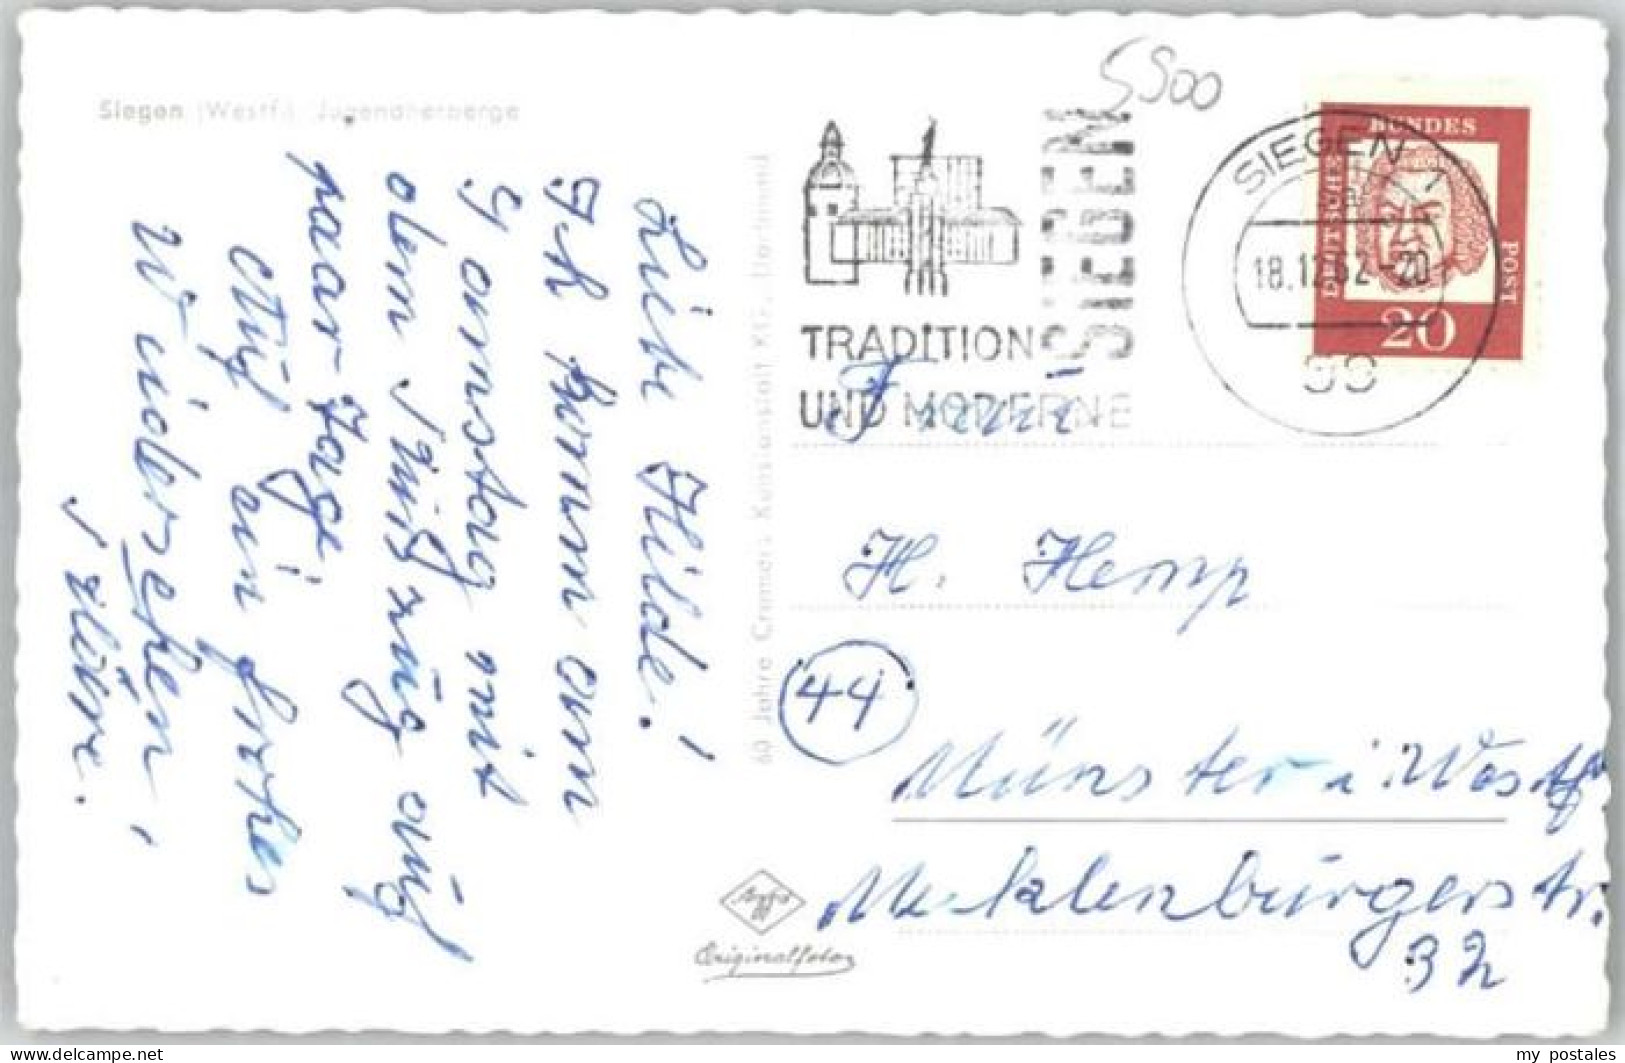 Siegen (Westf.) Jugendherberge
5500
TRADITION
UND MODERNE
SIEGEN
SIEGEN
18.12.62-20
DEUTSCHE
BUNDES
POST
20
Liebe Hilde!
Ich komme am
Samstag mit
dem Zug auf
paar Tage!
Auf ein frohes
Wiedersehen,
60 Jahre Cramers Kunstanstalt KG., Dortmund
H. Hemp
44
Münster i. Westf
Mecklenburgerstr.
32
Agfa
Originalfotos
my postales
www.delcampe.net